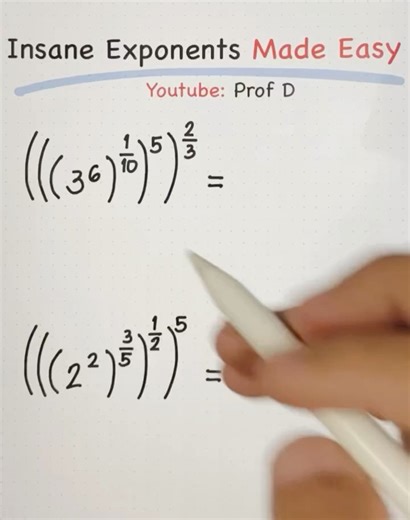 Insane Exponents Made Easy
Youtube: Prof D
(((3⁶)^(1/10))⁵)^(2/3) =
(((2²)^(3/5))^(1/2))⁵ =